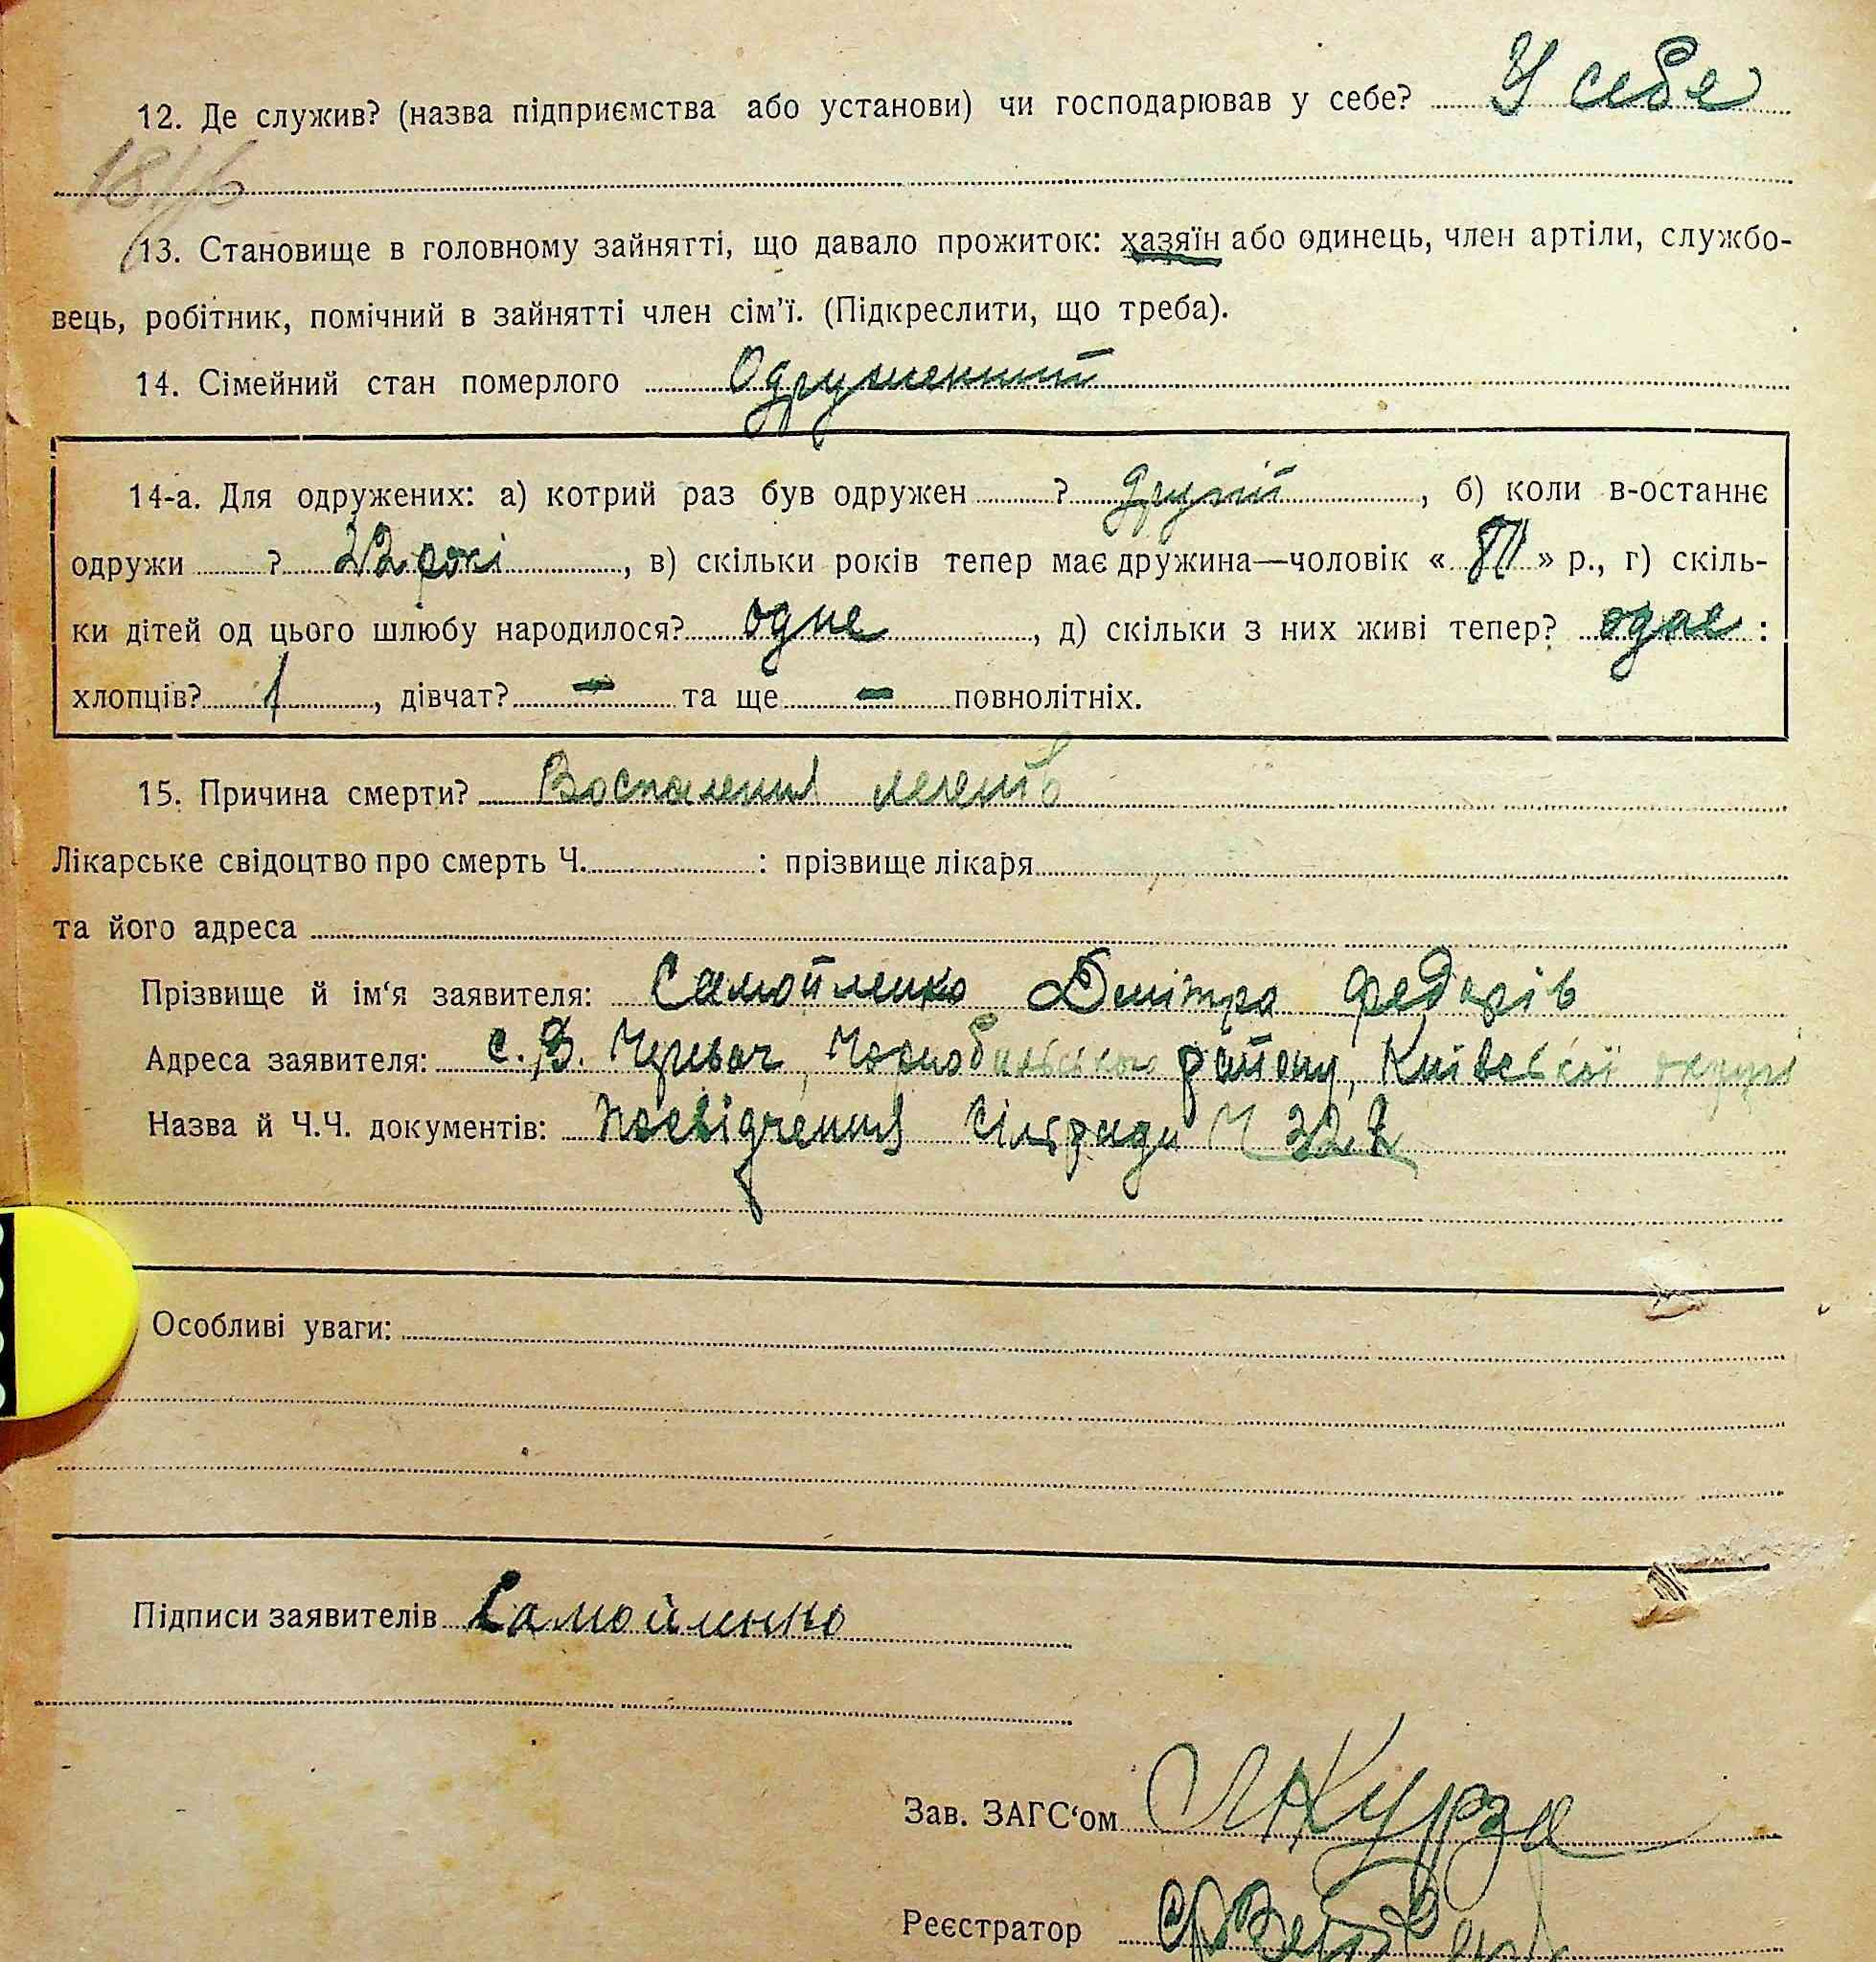 12. Де служив? (назва підприємства або установи) чи господарював у себе? У себе
13. Становище в головному зайнятті, що давало прожиток: хазяїн або одинець, член артіли, службо-
вець, робітник, помічний в зайнятті член сім'ї. (Підкреслити, що треба).
14. Сімейний стан померлого Одружений
14-а. Для одружених: а) котрий раз був одружен ? другий, б) коли в-останнє
одружи ? 22 рокі, в) скільки років тепер має дружина—чоловік « » р., г) скіль-
ки дітей од цього шлюбу народилося? одне, д) скільки з них живі тепер? одне :
хлопців? 1, дівчат? – та ще – повнолітніх.
15. Причина смерти? Воспаления легенів
Лікарське свідоцтво про смерть Ч. : прізвище лікаря
та його адреса
Прізвище й ім'я заявителя: Самойленко Дмітро Федорів
Адреса заявителя: с. Чорнобильського району, Київської округи
Назва й Ч.Ч. документів: Посвідчення сільради Ч
Особливі уваги:
Підписи заявителів Самойленко
Зав. ЗАГС'ом
Реєстратор